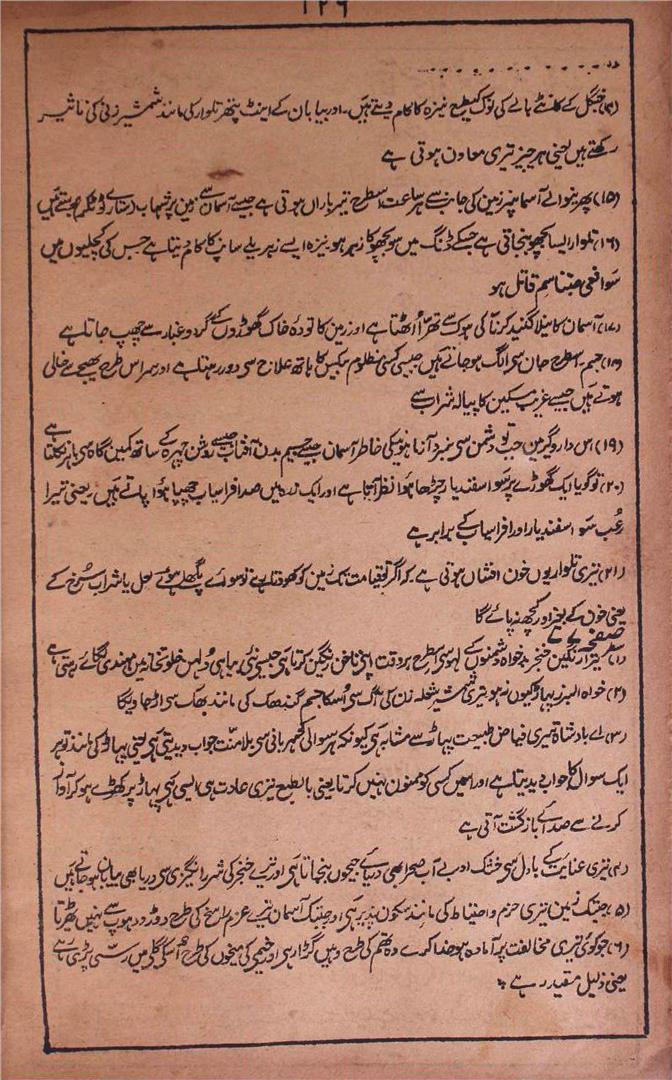 ۱۲۶
(۴) جنگل کے کانٹے بھالے کی نوک کیطرح نیزہ کا کام دیتے ہیں۔ اور بیابان کے اینٹ پتھر تلوار کی مانند شمشیر زنی کی تاثیر
رکھتے ہیں یعنی ہر چیز تیری معاون ہوتی ہے
(۱۵) پھر نیوالے آسمان پر زمین کی جانب سے ہر ساعت اسطرح تیر باراں ہوتی ہے جیسے آسمان سے زمین پر شہاب (ستارے) ٹوٹکر
(۱۶) تلوار ایسا بچھو بنجاتی ہے جسکے ڈنگ میں سو بچھو کا زہر ہو نیزہ ایسے زہریلے سانپ کا کام دیتا ہے جس کی کچلیوں میں
سو افعی جتنا سم قاتل ہو
(۱۷) آسمان کا نیلا گنبد کرنا کی ہوک سے تھرّا اُٹھتا ہے اور زمین کا تودۂ خاک گھوڑوں کے گرد و غبار سے چھپ جاتا ہے
(۱۸) جسم اسطرح جان سی الگ ہو جاتے ہیں جیسی کسی مظلوم بیکس کا ہاتھ علاج سی دور رہتا ہے اور سر اس طرح بھیجے سے خالی
ہوتے ہیں جیسے غریب مسکین کا پیالہ شراب سے
(۱۹) اس دار و گیر میں جب تو دشمن سی نبرد آزما ہونیکی خاطر آسمان جیسے جسیم بدن آفتاب جیسے روشن چہرہ کے ساتھ کمین گاہ سی باہر نکلتا ہے
(۲۰) تو گویا ایک گھوڑے پر سو اسفندیار چڑھا ہوا نظر آتا ہے اور ایک زرہ میں صد افراسیاب چھپا ہوا پاتے ہیں۔ یعنی تیرا
رُعب سو اسفندیار اور افراسیاب کے برابر ہے
(۲۱) تیری تلوار یوں خون افشاں ہوتی ہے کہ اگر تو قیامت تک زمین کو کھودتا رہے تو سوائے پگھلے ہوئے لعل یا شراب سُرخ کے
یعنی خون کے بغیر اور کچھ نہ پائے گا
صفحہ ۷۷
(۱) تیرا رنگین خنجر بدخواہ دشمنوں کے لہو سی اسطرح ہر وقت اپنی ناخن رنگین کرتا ہی جیسی نئی بیاہی دُلہن خلوتخانہ میں مہندی لگائے رہتی ہے
(۲) خواہ البرز پہاڑ کیوں نہ ہو تیری شمشیر شعلہ زن کی آگ سی اُسکا جسم گندھک کی مانند بھک سی اڑ جاویگا
(۳) اے بادشاہ تیری فیاض طبیعت پہاڑ سے مشابہ ہی کیونکہ ہر سوالی کو مہربانی سی بلا منت جواب دیدیتی ہی یعنی پہاڑ کی مانند تو ہر
ایک سوال کا جواب دیدیتا ہے اور اسمیں کسی کو ممنون نہیں کرتا یعنی بالطبع تیری عادت ہی ایسی ہی پہاڑ پر کھڑے ہو کر آواز
کرنے سے صدائے بازگشت آتی ہے
(۴) تیری عنایت کے بادل سی خشک اور بے آب صحرا بھی دریائے جیحوں بنجاتا ہی اور تیرے خنجر کی شرر انگیزی سی دریا بھی بیابان ہو جاتے ہیں
(۵) جبتک زمین تیری حزم و احتیاط کی مانند سکون پذیر ہی اور جبتک آسمان تیرے عزم راسخ کی طرح دوڑ دھوپ سے نہیں ٹھہرتا
(۶) جو کوئی تیری مخالفت پر آمادہ ہو خدا کرے وہ تھم کی طرح زمین میں گڑا رہی اور خیمہ کی میخوں کی طرح اُسکی گلی میں رسّی پڑی رہے
یعنی ذلیل مقید رہے